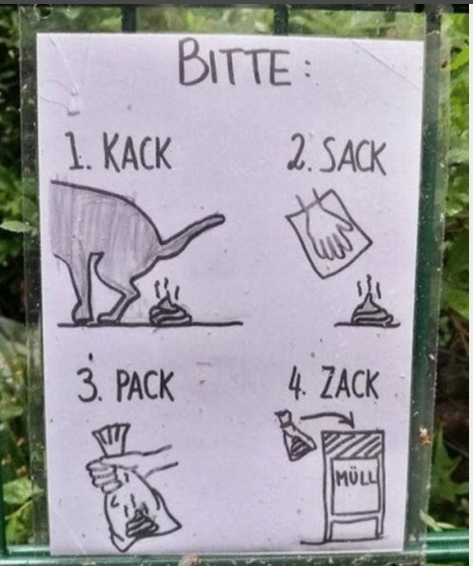 BITTE:
1. KACK
2. SACK
3. PACK
4. ZACK
MÜLL